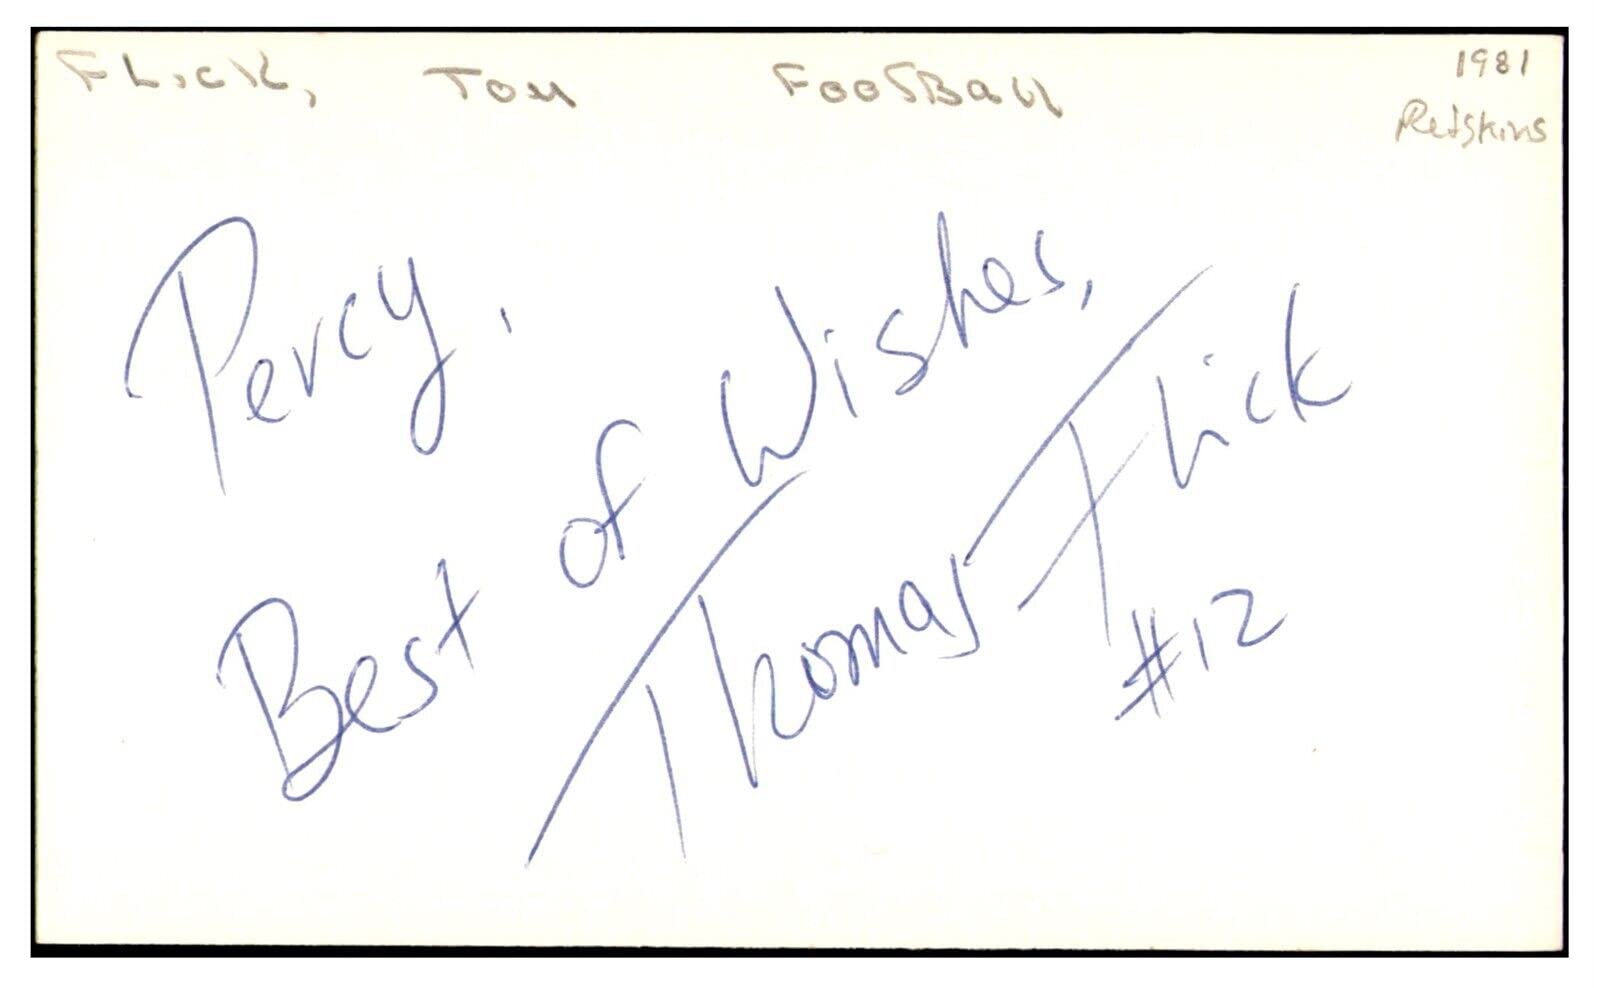 Flick, Tom Football 1981
Redskins
Percy,
Best of Wishes,
Thomas Flick
#12